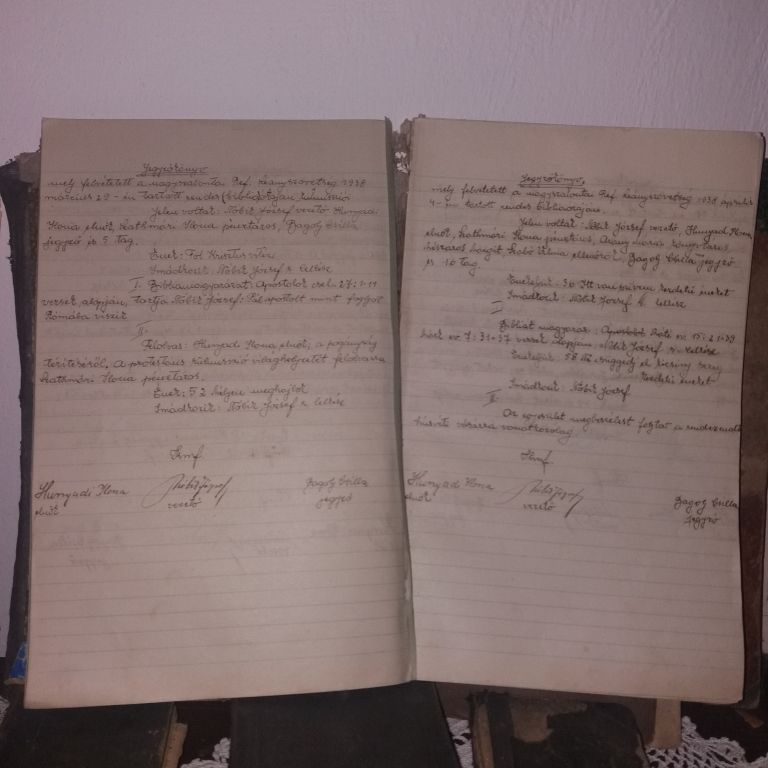 Jegyzőkönyv
mely felvétetett a nagyszalontai Ref. Leányszövetség 1938
március 29-én tartott rendes bibliaóráján
Jelen voltak: Nóbik József vezető Hunyadi
Ilona elnök, Szathmári Ilona pénztáros, Gagoly Csilla
jegyző és 5 tag.
Ének: Fel Krisztus
Imádkozik: Nóbik József s. lelkész
I. Bibliamagyarázat: Apostolok csel. 27:1-11
versek alapján, tartja Nóbik József: Pál apostolt mint foglyot
Rómába viszik
II.
Felolvas: Hunyadi Ilona elnök, a pogányság
térítéséről. A protestáns külmisszió világhelyzetét felolvassa
Szathmári Ilona pénztáros.
Ének: 52
Imádkozik: Nóbik József s. lelkész
Kmf.
Hunyadi Ilona
elnök
Nóbik József
vezető
Gagoly Csilla
jegyző
Jegyzőkönyv,
mely felvétetett a nagyszalontai Ref. Leányszövetség 1938 április
4-én tartott rendes bibliaóráján.
Jelen voltak: Nóbik József vezető, Hunyadi Ilona
elnök, Szathmári Ilona pénztáros, Arany Mária könyvtáros,
háznagy, Szabó Vilma ellenőr, Gagoly Csilla jegyző
és 10 tag.
Énekeltük: 30 Itt van szívem
Imádkozik: Nóbik József s. lelkész
I
Bibliát magyaráz: 15:21-39
7:31-37 versek alapján Nóbik József s. lelkész
Énekeltük: 58 Ne csüggedj el kicsiny sereg
kezdetű éneket
Imádkozik: Nóbik József
II.
Az egyesület megbeszélést folytat a rendezendő
húsvéti vásárra vonatkozólag
Kmf.
Hunyadi Ilona
elnök
Nóbik József
vezető
Gagoly Csilla
jegyző